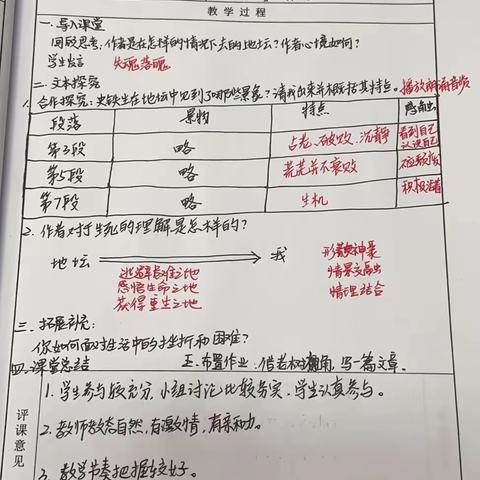 教学过程
一. 导入课堂
回顾思考: 作者是在怎样的情况下去的地坛? 作者心境如何?
学生发言 失魂落魄
二. 文本探究
1. 合作探究: 史铁生在地坛中见到了哪些景象? 请找出来并概括其特点。播放朗诵音频
段落 景物 特点
第3段 略 古老、破败、沉静 看到自己 认识自己
第5段 略 荒芜并不衰败 不应颓废
第7段 略 生机 积极活着
2. 作者对于生死的理解是怎样的?
地坛 我
逃避苦难之地
感悟生命之地
获得重生之地
形散神聚
情景交融
情理结合
三. 拓展研究:
你如何面对生活中的挫折和困难?
四. 课堂总结 五. 布置作业: 借老树视角, 写一篇文章.
评课意见
1. 学生参与较充分, 小组讨论比较务实, 学生认真参与。
2. 教师教态自然, 有激情, 有亲和力。
3. 教学节奏把握较好。